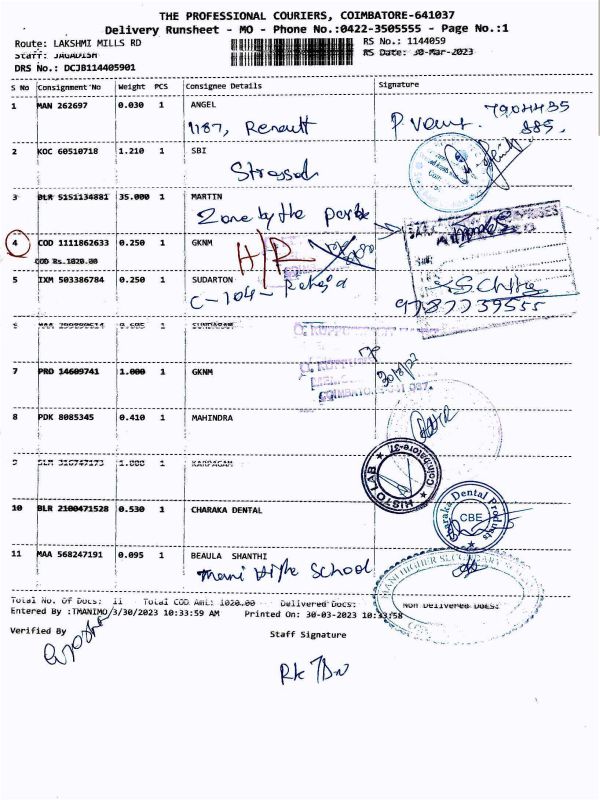 THE PROFESSIONAL COURIERS, COIMBATORE-641037
Delivery Runsheet - MO - Phone No.:0422-3505555 - Page No.:1
Route: LAKSHMI MILLS RD RS No.: 1144059
Staff: JAGADISH RS Date: 30-Mar-2023
DRS No.: DCJB114405901
S No Consignment No Weight PCS Consignee Details Signature
1 MAN 262697 0.030 1 ANGEL
1187, Renault
2 KOC 60510718 1.210 1 SBI
3 BLR 5151134881 35.000 1 MARTIN
Zone by the park
4 COD 1111862633 0.250 1 GKNM
COD Rs.1020.00 H/R
5 IXM 503386784 0.250 1 SUDARTON
C-104-
9787739555
7 PRD 14609741 1.000 1 GKNM
COIMBATORE-641 037.
8 PDK 8085345 0.410 1 MAHINDRA
HISTO LAB Coimbatore-37
9 1.000 1 KARPAGAM
10 BLR 2100471528 0.530 1 CHARAKA DENTAL
Charaka Dental Products
CBE
11 MAA 568247191 0.095 1 BEAULA SHANTHI
Mani High School
MANI HIGHER SECONDARY
Total No. Of Docs: 11 Total COD Amt: 1020.00 Delivered Docs: Non Delivered Docs:
Entered By :TMANIMO/3/30/2023 10:33:59 AM Printed On: 30-03-2023 10:33:58
Verified By Staff Signature